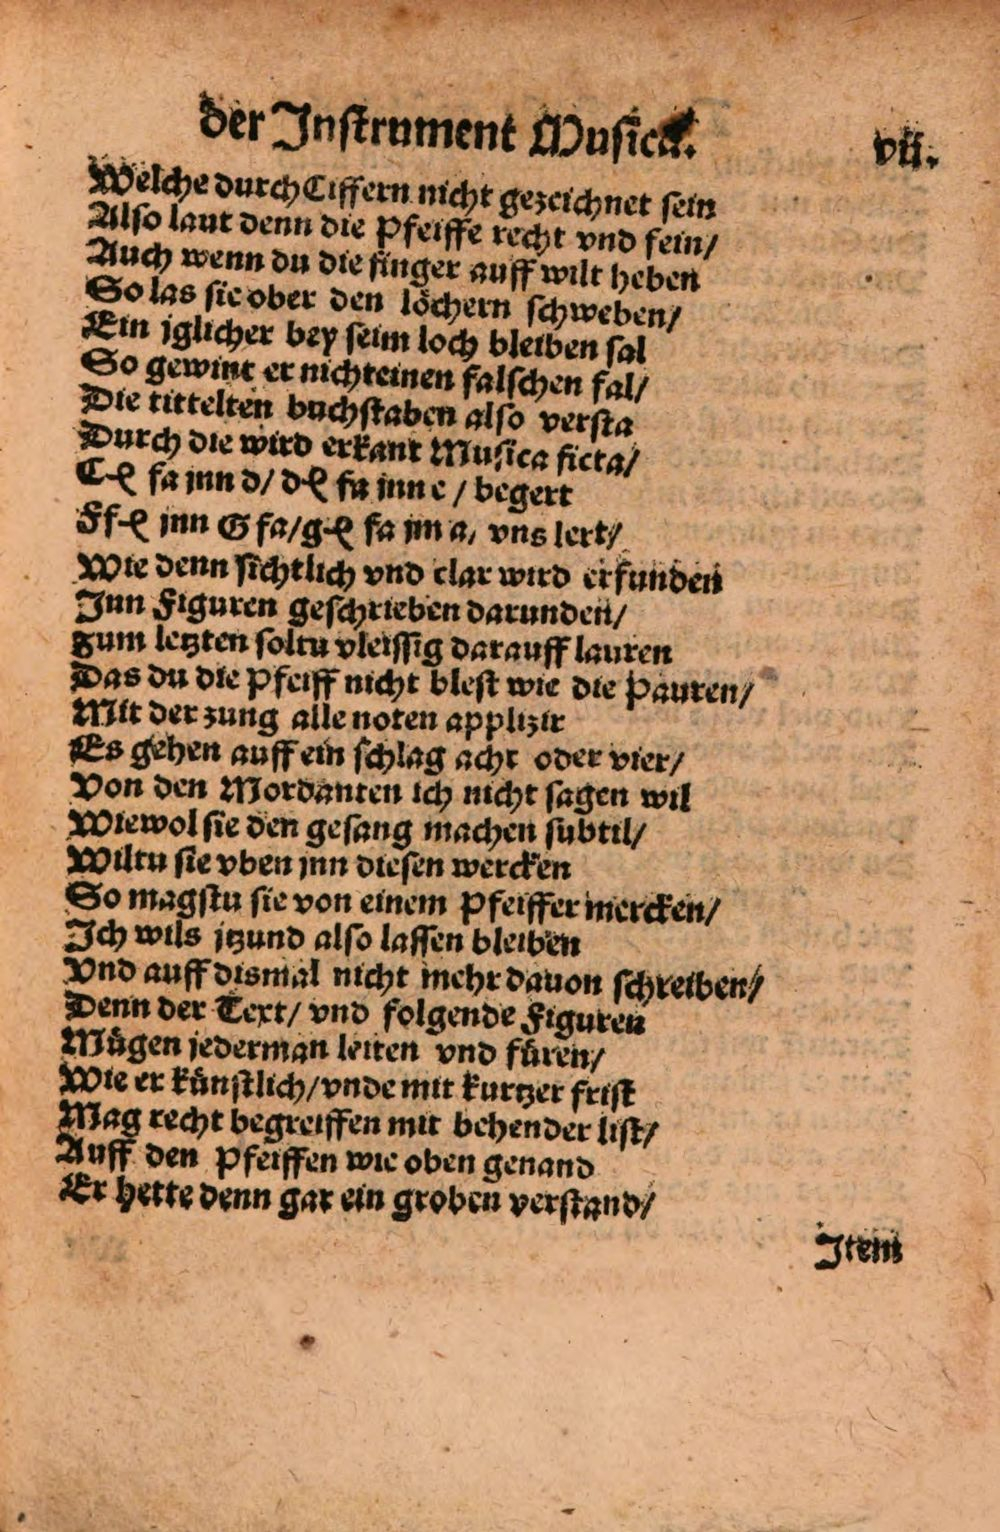 der Instrument Musica.
vij.
Welche durch Ciffern nicht gezeichnet sein
Also laut denn die Pfeiffe recht vnd fein/
Auch wenn du die finger auff wilt heben
So las sie ober den löchern schweben/
Ein jglicher bey seim loch bleiben sal
So gewint er nicht einen falschen fal/
Die tittelten buchstaben also versta
Durch die wird erkant Musica ficta/
fa jnn d/ fa jnn e / begert
jnn G fa/ fa jnn a, vns lert/
Wie denn sichtlich vnd clar wird erfunden
Jnn Figuren geschrieben darunden/
zum letzten soltu vleissig darauff lauren
Das du die Pfeiff nicht blest wie die Pauren/
Mit der zung alle noten applizir
Es gehen auff ein schlag acht oder vier/
Von den Mordanten ich nicht sagen wil
Wiewol sie den gesang machen subtil/
Wiltu sie vben jnn diesen wercken
So magstu sie von einem Pfeiffer mercken/
Ich wils jtzund also lassen bleiben
Vnd auff dismal nicht mehr dauon schreiben/
Denn der Text/ vnd folgende Figuren
Mügen jederman leiten vnd füren/
Wie er künstlich/ vnde mit kurtzer frist
Mag recht begreiffen mit behender list/
Auff den Pfeiffen wie oben genand
Er hette denn gar ein groben verstand/
Item